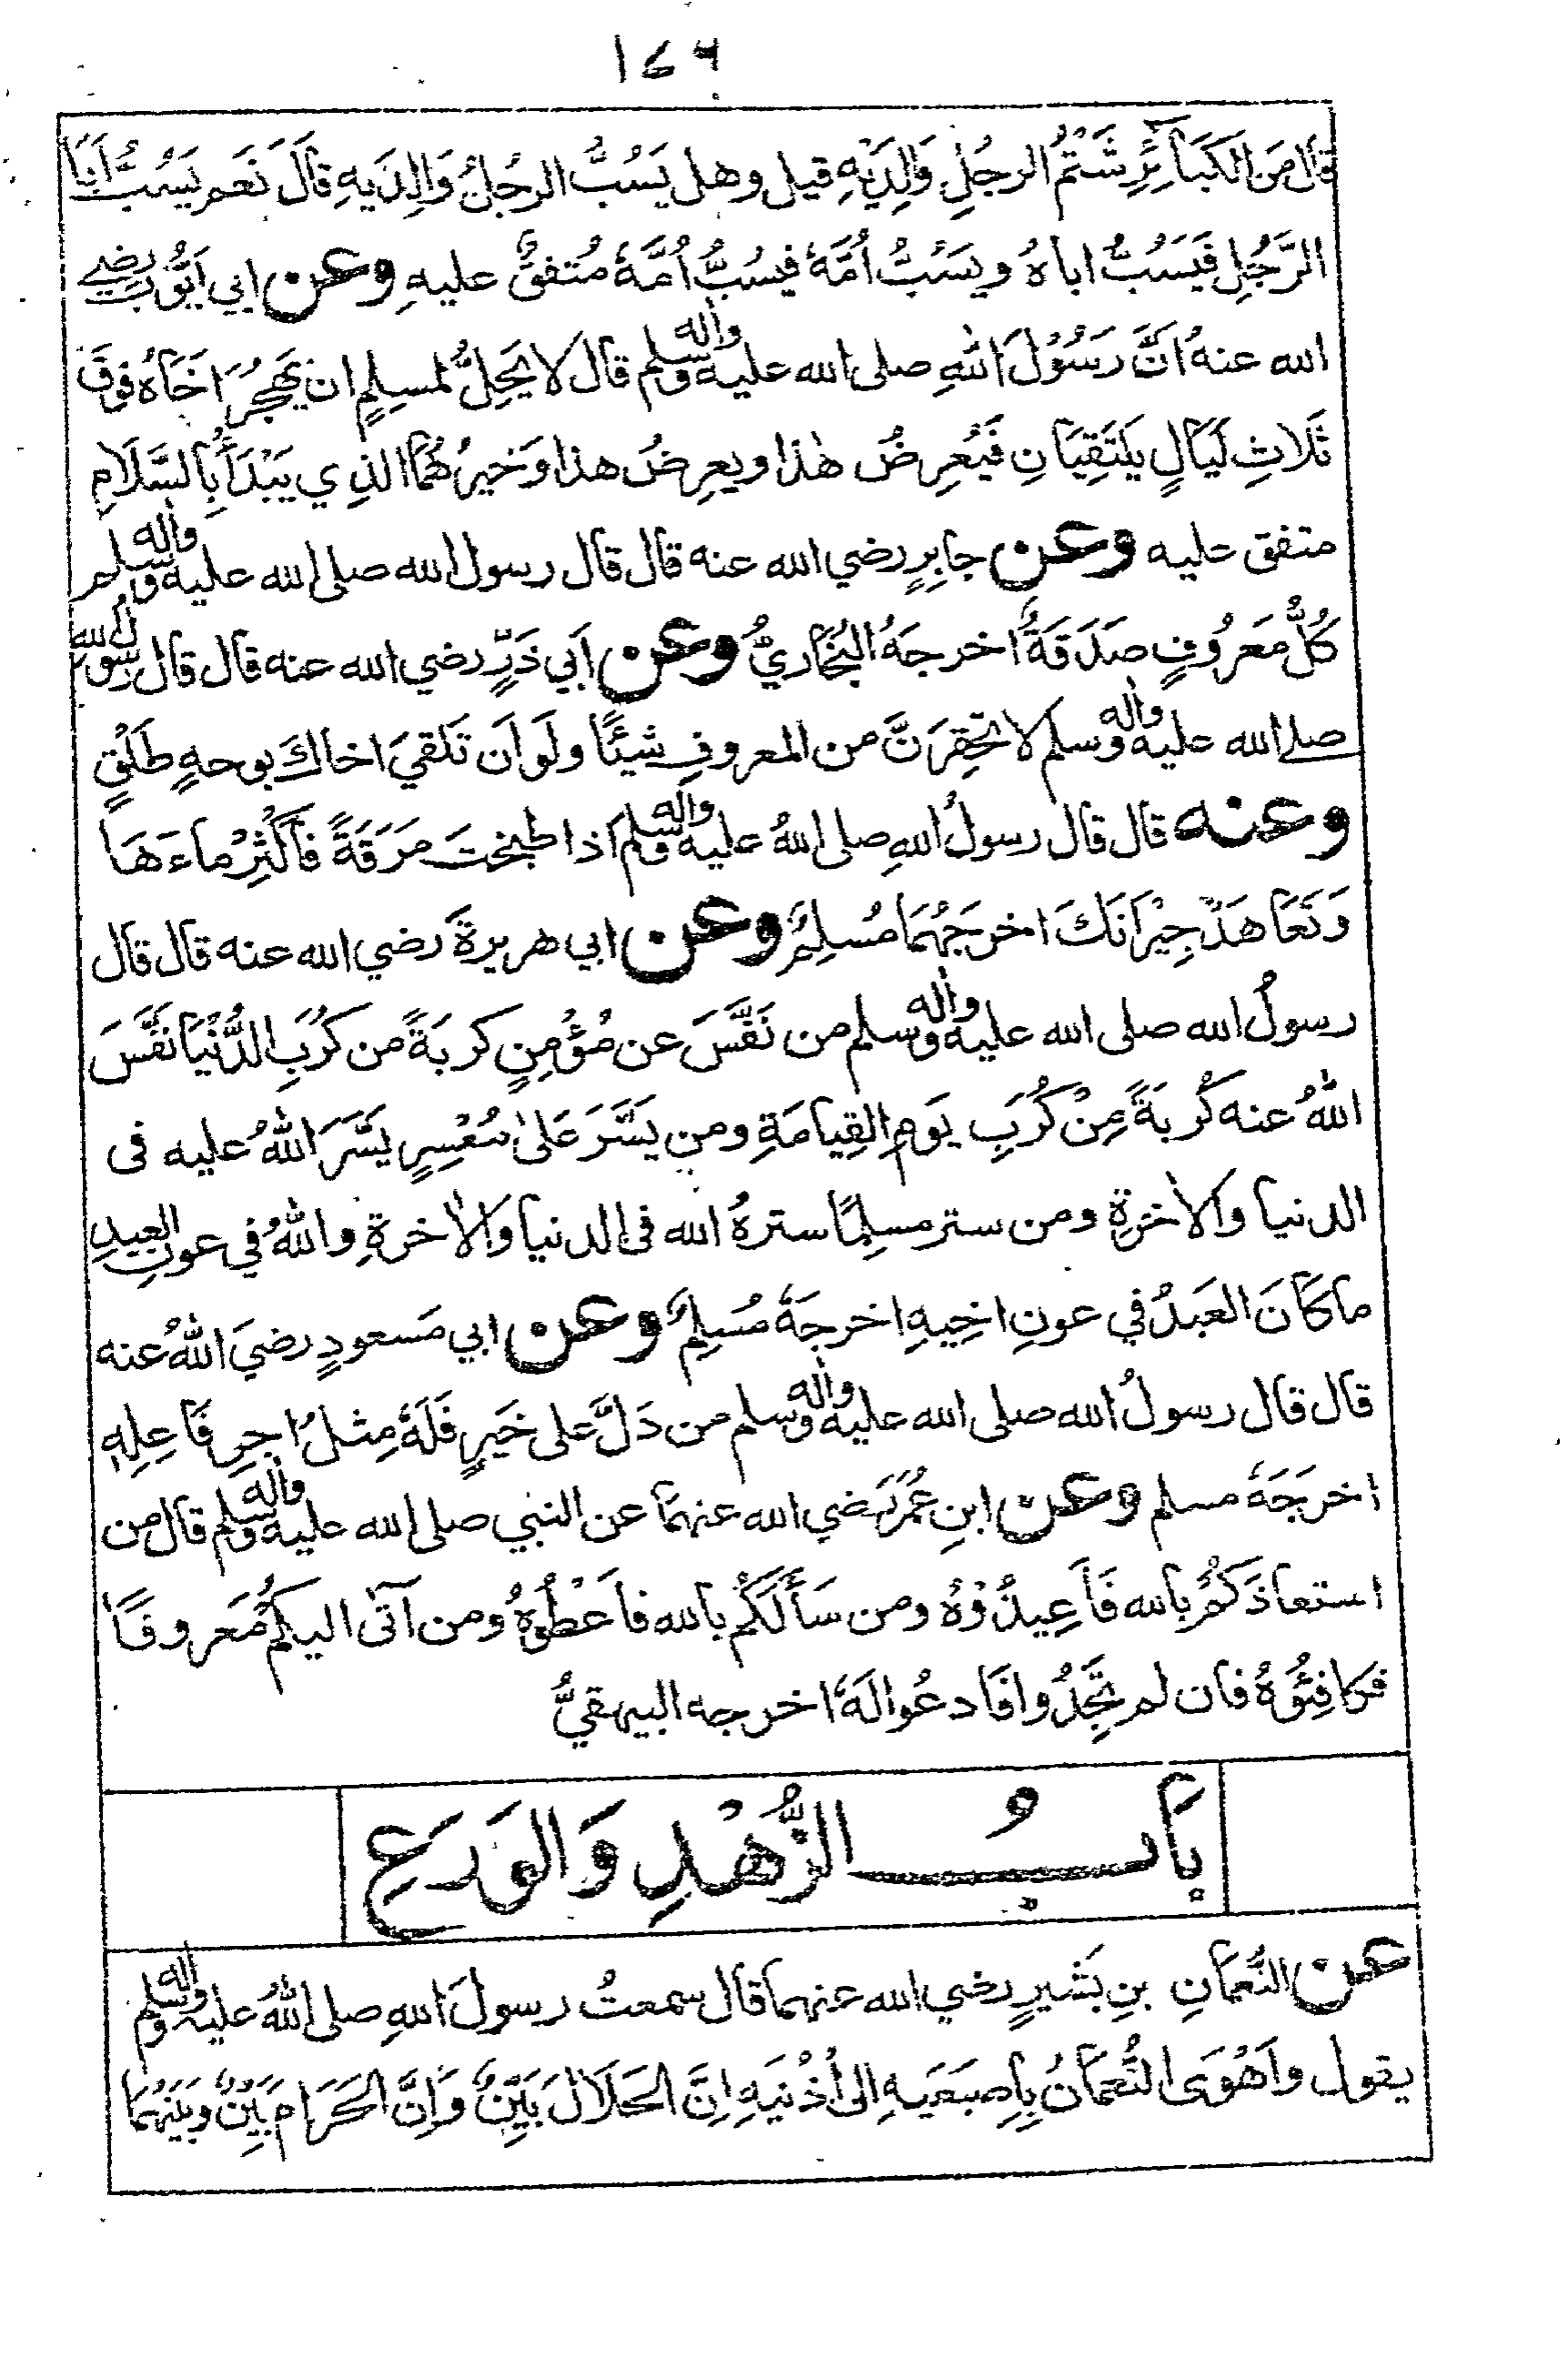 ۱۷۹
قال مَن الكَبَآئِرِ شَتْمُ الرجُلِ وَالِدَيْهِ قيل وهل يَسُبُّ الرجُلُ وَالِدَيهِ قالَ نَعَم يَسُبُّ اَبَا
الرَّجُلِ فَيَسُبُّ اباهُ ويَسُبُّ اُمَّهٗ فيسُبُّ اُمَّهٗ مُتفقٌ عليهِ وعن ابي اَيُّوبَ رضي
الله عنهُ انَّ رَسُوْلَ اللهِ صلى الله عليه واٰله وسلم قال لا يَحِلُّ لمسلِمٍ ان يَهجُرَ اَخَاهُ فوقَ
ثَلاثِ لَيَالٍ يَلتَقِيَانِ فَيُعرِضُ هٰذا ويعرِضُ هذا وَخيرُهُمَا الذِي يَبْدَأُ بِالسَّلَامِ
متفق عليه وعن جابرٍ رضي الله عنه قال قال رسول الله صلى الله عليه واٰله وسلم
كُلُّ مَعرُوفٍ صَدَقَةٌ اخرجَهُ البُخَاريُّ وعن اَبي ذَرٍّ رضي الله عنه قال قال رسول الله
صلے الله عليه واٰله وسلم لا تَحقِرَنَّ من المعروفِ شيئًا ولَو اَن تَلقيَ اخاكَ بوجهٍ طَلْقٍ
وعنه قال قال رسولُ اللهِ صلى اللهُ عليه واٰله وسلم اذا طبختَ مَرَقَةً فاَكْثِرْ ماءَهَا
وَتَعَاهَدْ جِيْرَانَكَ اخرجَهُمَا مُسلِمٌ وعن ابي هريرةَ رضي الله عنه قال قال
رسولُ الله صلى الله عليه واٰله وسلم من نَفَّسَ عن مُؤْمِنٍ كربَةً من كُرَبِ الدُّنْيَا نَفَّسَ
اللهُ عنه كُربَةً مِنْ كُرَبِ يَومِ القِيامَةِ ومن يَسَّرَ عَلىٰ مُعْسِرٍ يَسَّرَ اللهُ عليه فى
الدنيا والاٰخرةِ ومن ستر مسلِمًا سترهُ الله فى الدنيا والاٰخرةِ واللهُ في عونِ العبدِ
ما كَانَ العَبدُ في عونِ اخِيهِ اخرجَهٗ مُسلِمٌ وعن ابي مَسعودٍ رضيَ اللهُ عنه
قال قال رسولُ الله صلى الله عليه واٰله وسلم من دَلَّ على خَيرٍ فَلَهٗ مِثلُ اجرِ فَاعِلِهٖ
اخرَجَهٗ مسلم وعن ابنِ عُمَرَ رَضي الله عنهمَا عن النبي صلى الله عليه واٰله وسلم قال من
استعاذَكُم بالله فَأَعِيذُوْهُ ومن سَأَلَكُم بالله فاَعْطُوهُ ومن آتى اليكُم مَعروفًا
فكافِئُوهُ فان لم تَجِدُوا فَادعُوا لَهٗ اخرجه البيهقيُّ
بَابُ الزُّهْدِ وَالوَرَعِ
عن النُّعمَانِ بنِ بَشيرٍ رضي الله عنهما قال سمعتُ رسولَ اللهِ صلى اللهُ عليه واٰله وسلم
يقول واَهْوَى النُّعمَانُ بِاِصبَعَيهِ الى اُذْنَيهِ اِنَّ الحَلَالَ بَيِّنٌ وَاِنَّ الحَرَامَ بَيِّنٌ وبَينَهُمَا